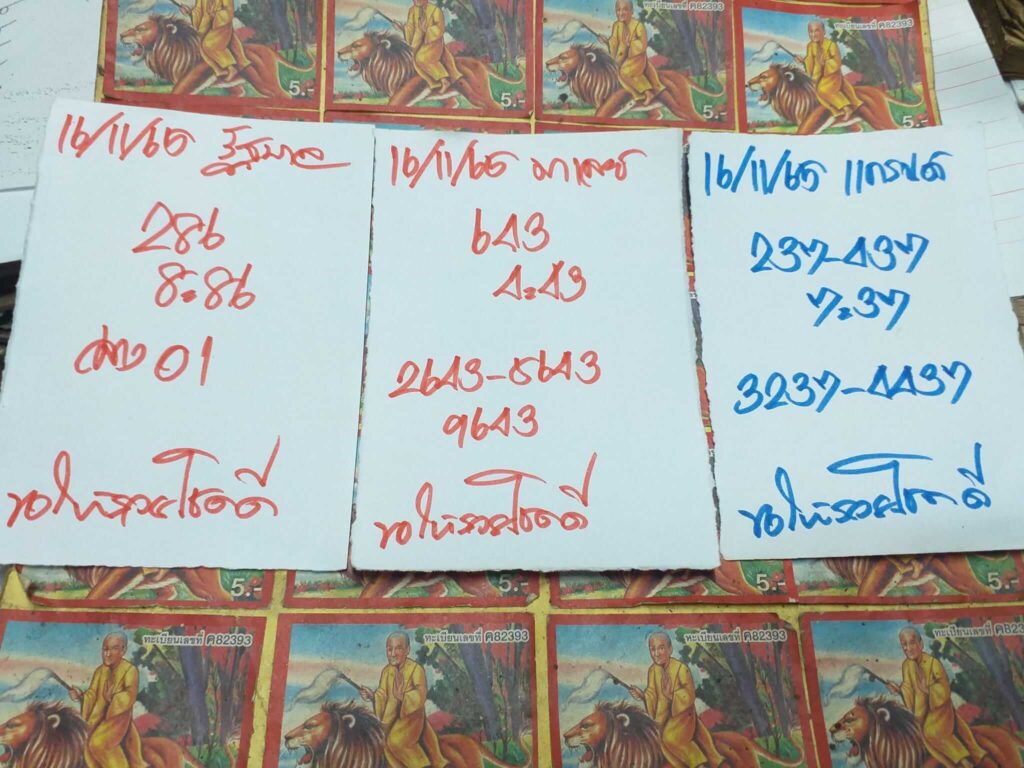 5.-
5.-
5.-
ทะเบียนเลขที่ ฅ82393
5.-
16/11/65 รัฐบาล
286
8=86
ล่าง 01
ขอให้รวยโชคดี
16/11/65 มาเลย์
643
4=43
2643-5643
9643
ขอให้รวยโชคดี
16/11/65 แกรนด์
237-437
7=37
3237-4437
ขอให้รวยโชคดี
5.-
5.-
5.-
5.-
ทะเบียนเลขที่ ฅ82393
ทะเบียนเลขที่ ฅ82393
ทะเบียนเลขที่ ฅ82393
ทะเบียนเลขที่ ฅ82393